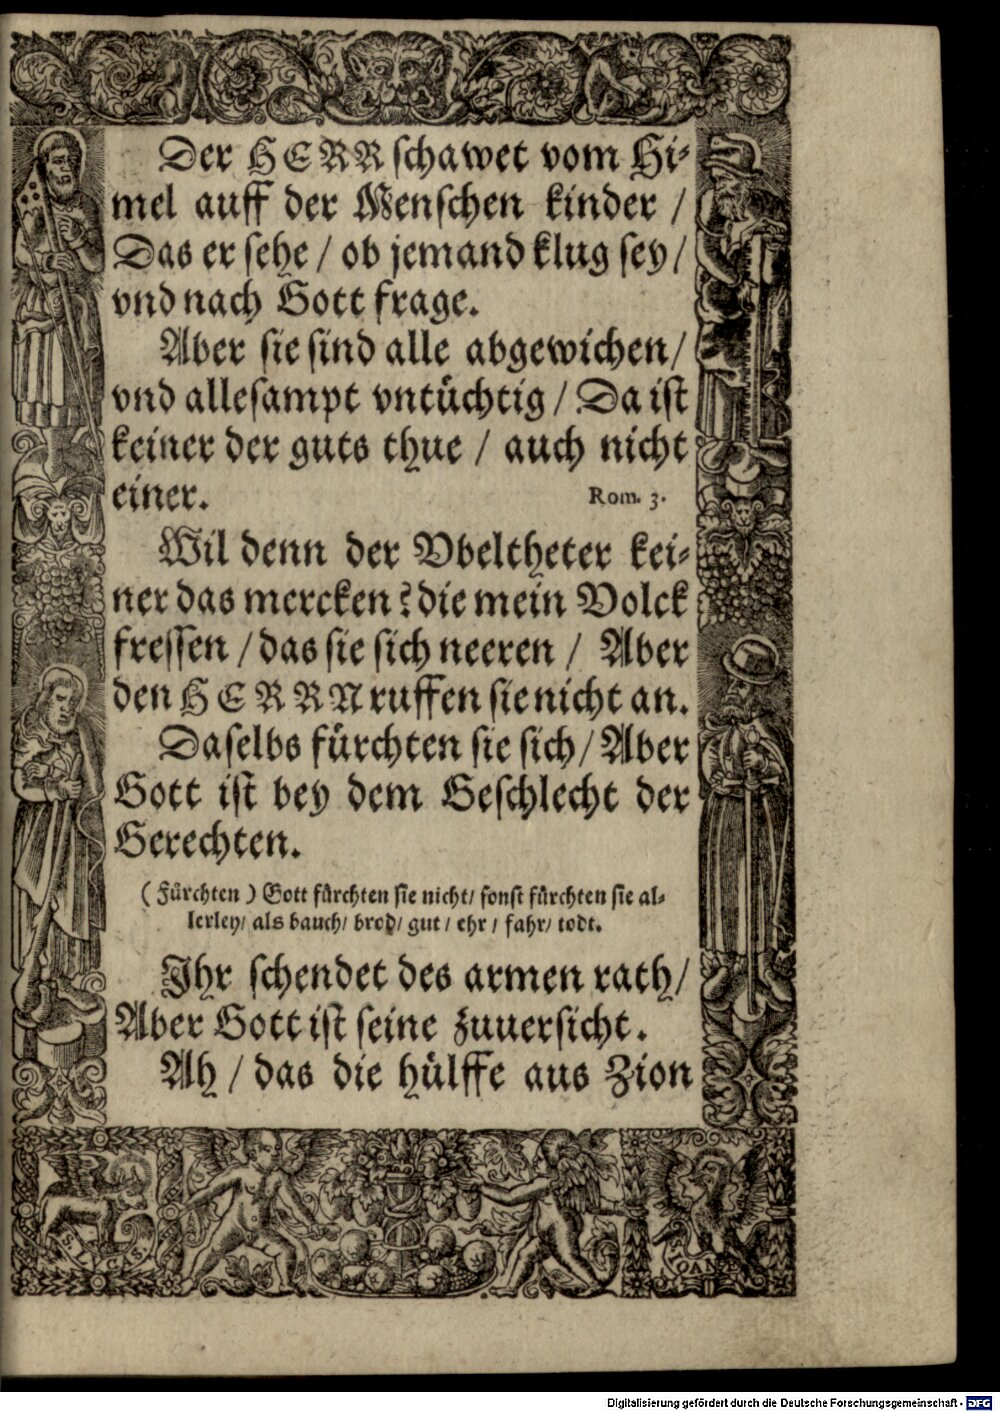 Der HERR schawet vom Hi-
mel auff der Menschen kinder /
Das er sehe / ob jemand klug sey /
vnd nach Gott frage.
Aber sie sind alle abgewichen /
vnd allesampt vntüchtig / Da ist
keiner der guts thue / auch nicht
einer.
Rom. 3.
Wil denn der Vbeltheter kei-
ner das mercken? die mein Volck
fressen / das sie sich neeren / Aber
den HERRN ruffen sie nicht an.
Daselbs fürchten sie sich / Aber
Gott ist bey dem Geschlecht der
Gerechten.
(Fürchten) Gott fürchten sie nicht / sonst fürchten sie al-
lerley / als bauch / brod / gut / ehr / fahr / todt.
Ihr schendet des armen rath /
Aber Gott ist seine zuuersicht.
Ah / das die hülffe aus Zion
Digitalisierung gefördert durch die Deutsche Forschungsgemeinschaft - DFG